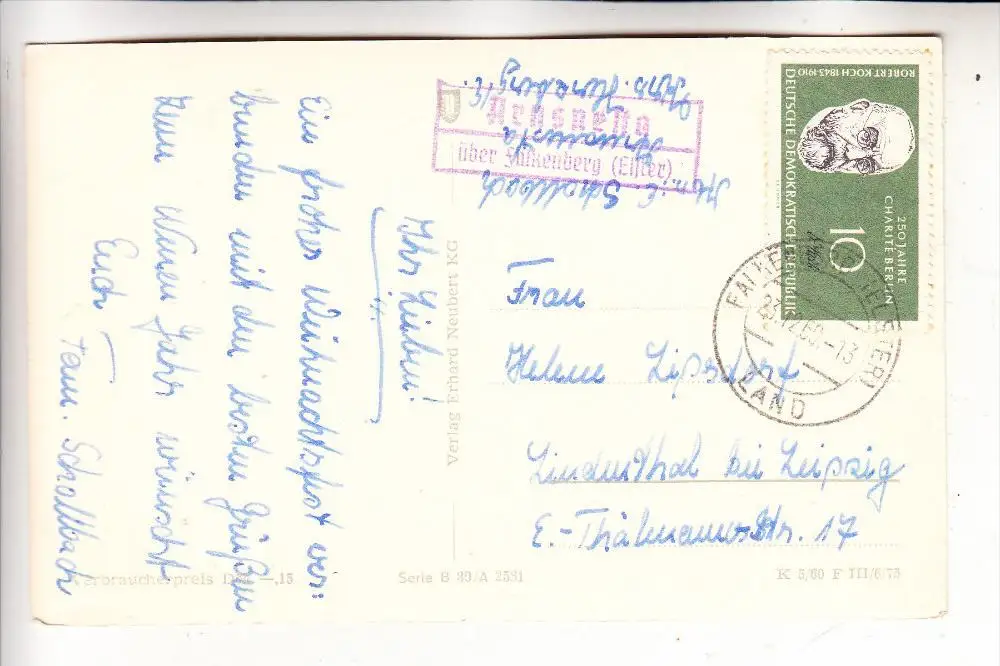 Ihr Lieben!
Ein frohes Weihnachtsfest ver-
bunden mit den besten Grüßen
zum Neuen Jahr wünscht
Euch Fam. Schallbach
Schallbach
Kr. Herzberg/E.
über Falkenberg (Elster)
Frau
Helene Lipsdorf
Lindenthal bei Leipzig
E.-Thälmann-Str. 17
ROBERT KOCH 1843-1910
DEUTSCHE DEMOKRATISCHE REPUBLIK
250 JAHRE
CHARITÉ BERLIN
10
FALKENBERG (ELSTER)
60.-13
LAND
Verlag Erhard Neubert KG
Verbraucherpreis DM -,15
Serie B 39/A 2531
K 5/60 F III/6/75